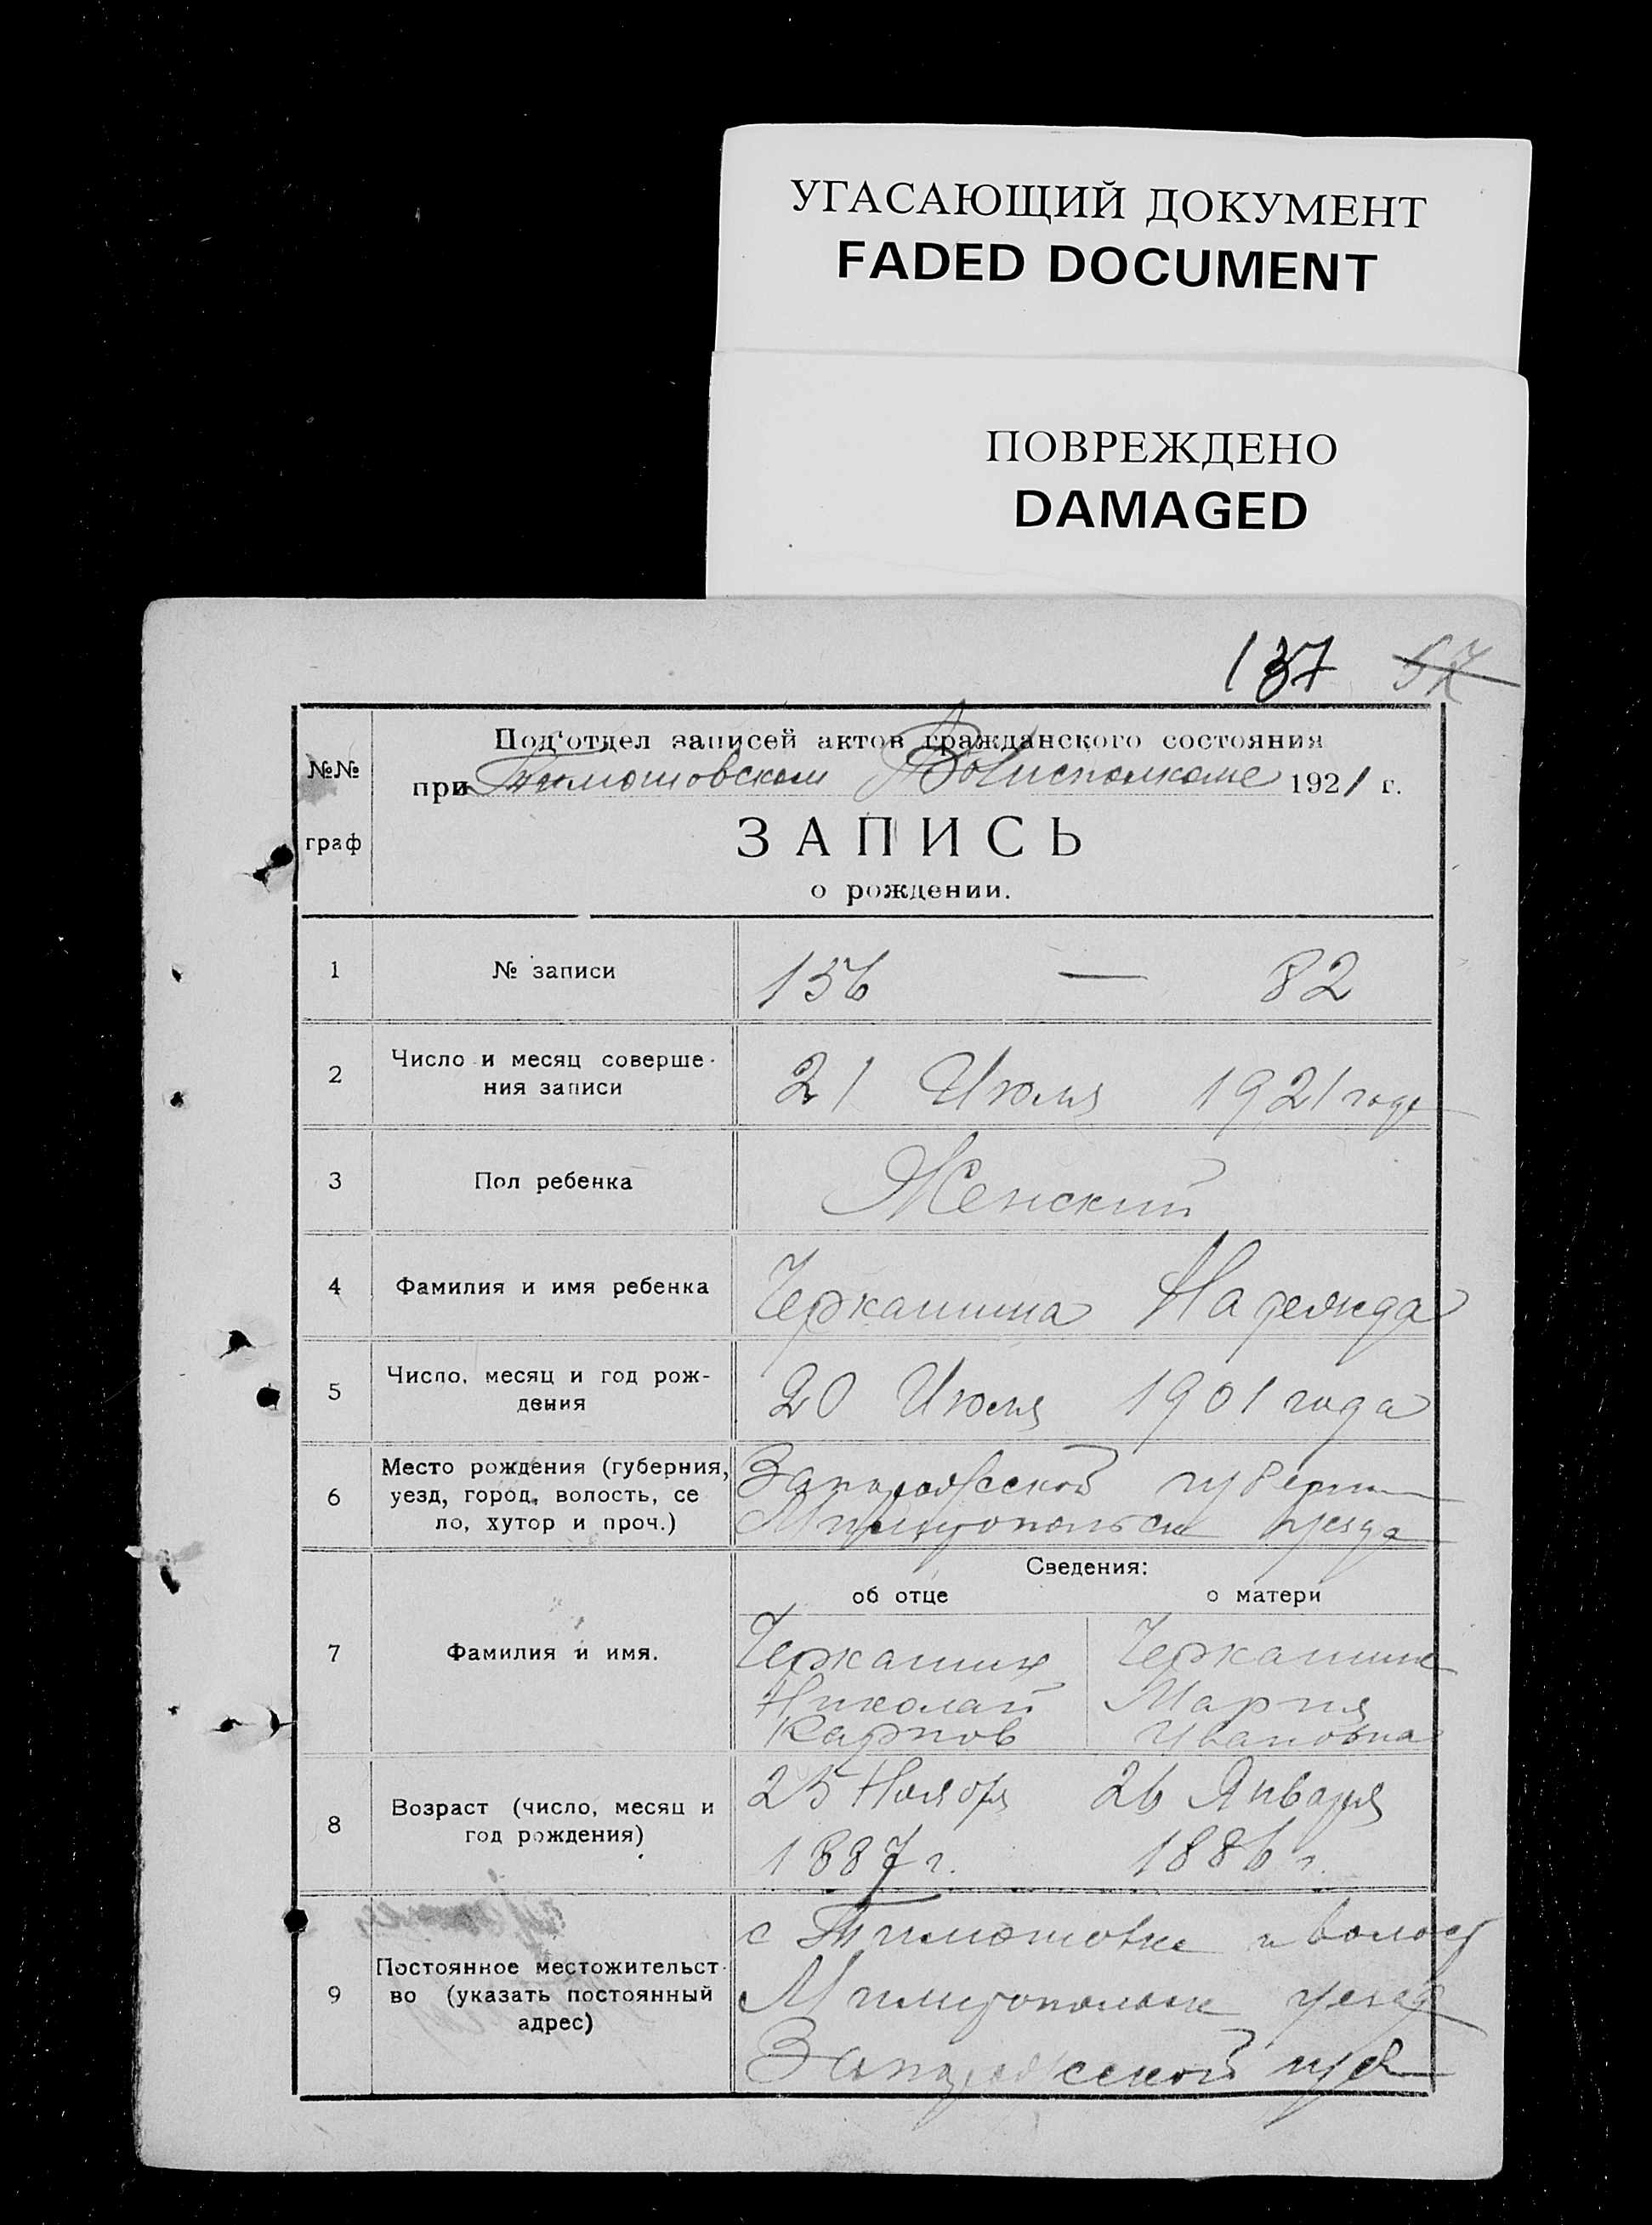 УГАСАЮЩИЙ ДОКУМЕНТ
FADED DOCUMENT
ПОВРЕЖДЕНО
DAMAGED
137 57
№№ граф
Под'отдел записей актов гражданского состояния
при Тимошовском Волисполкоме 1921 г.
ЗАПИСЬ
о рождении.
1 № записи 156 — 82
2 Число и месяц соверше-
ния записи 21 Июля 1921 года
3 Пол ребенка Женский
4 Фамилия и имя ребенка Черкашина Надежда
5 Число, месяц и год рож-
дения 20 Июля 1901 года
6 Место рождения (губерния,
уезд, город, волость, се
ло, хутор и проч.)
Запорожской губернии
Милитопольск уезда
Сведения:
об отце о матери
7 Фамилия и имя.
Черкашин Черкашина
Николай Мария
Карпов Ивановна
8 Возраст (число, месяц и
год рождения)
25 Ноября 26 Января
1887 г. 1886 г.
9 Постоянное местожительст-
во (указать постоянный
адрес)
с Тимошовке и волост
Милитопольск уезда
Запорожской губ